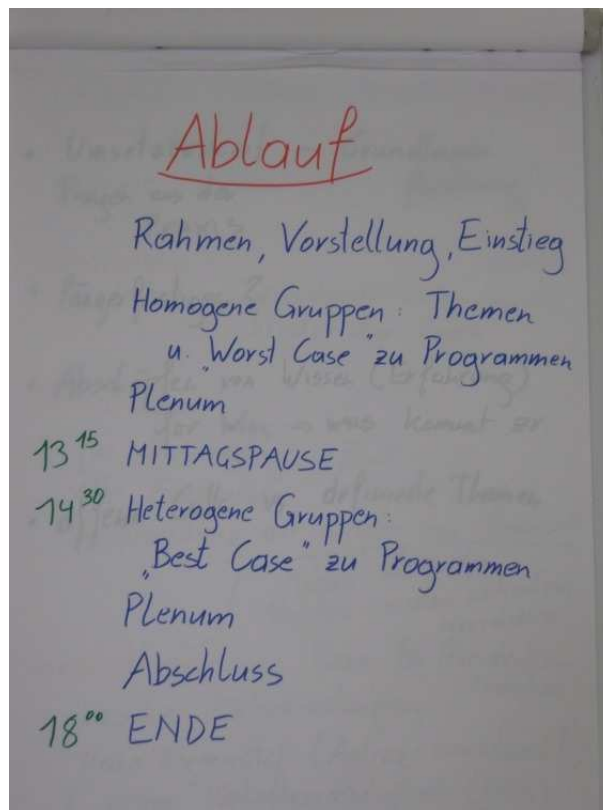 Ablauf
Rahmen, Vorstellung, Einstieg
Homogene Gruppen: Themen
u. "Worst Case" zu Programmen
Plenum
13 15 MITTAGSPAUSE
14 30 Heterogene Gruppen:
„Best Case" zu Programmen
Plenum
Abschluss
18 00 ENDE